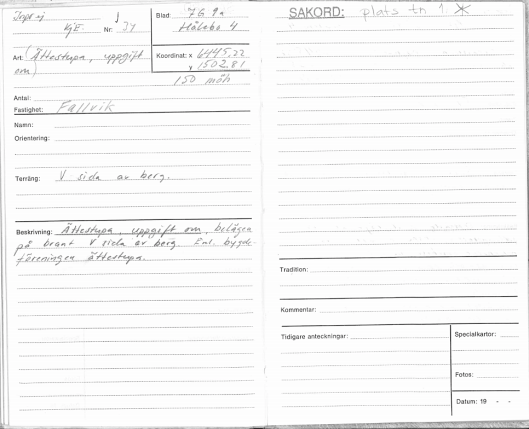 Topr ej
KjE. Nr: 34
Blad: 7G 9a
Hålebo 4
Art: (Ättestupa, uppgift
om)
Koordinat: x 6445,22
y 1502,81
150 möh
Antal:
Fastighet: Fallvik
Namn:
Orientering:
Terräng: V sida av berg.
Beskrivning: Ättestupa, uppgift om, belägen
på brant V sida av berg. Enl. bygde-
föreningen ättestupa.
SAKORD: plats tn 1
Tradition:
Kommentar:
Tidigare anteckningar:
Specialkartor:
Fotos:
Datum: 19 - -